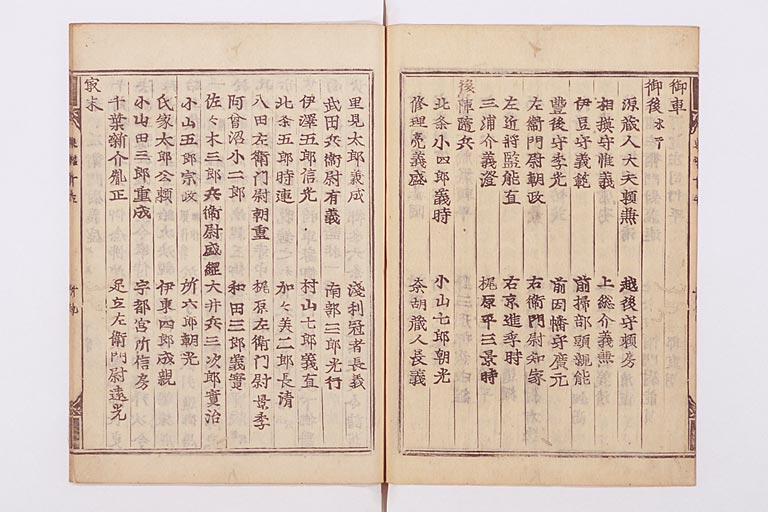 御車
御後 水干
源蔵人大夫頼兼 越後守頼房
相摸守惟義 上総介義兼
伊豆守義範 前掃部頭親能
豊後守季光 前因幡守廣元
左衛門尉朝政 右衛門尉知家
左近将監能直 右京進季時
三浦介義澄 梶原平三景時
後陣随兵
北条小四郎義時 小山七郎朝光
修理亮義盛 奈胡蔵人長義
里見太郎義成 淺利冠者長義
武田兵衛尉有義 南部三郎光行
伊澤五郎信光 村山七郎義直
北条五郎時連 加々美二郎長清
八田左衛門尉朝重 梶原左衛門尉景季
阿曾沼小二郎 和田三郎義實
佐々木三郎兵衛尉盛綱 大井兵三次郎實治
小山五郎宗政 所六郎朝光
氏家太郎公頼 伊東四郎成親
小山田三郎重成 宇都宮所信房
千葉新介胤正 足立左衛門尉遠光
寂末